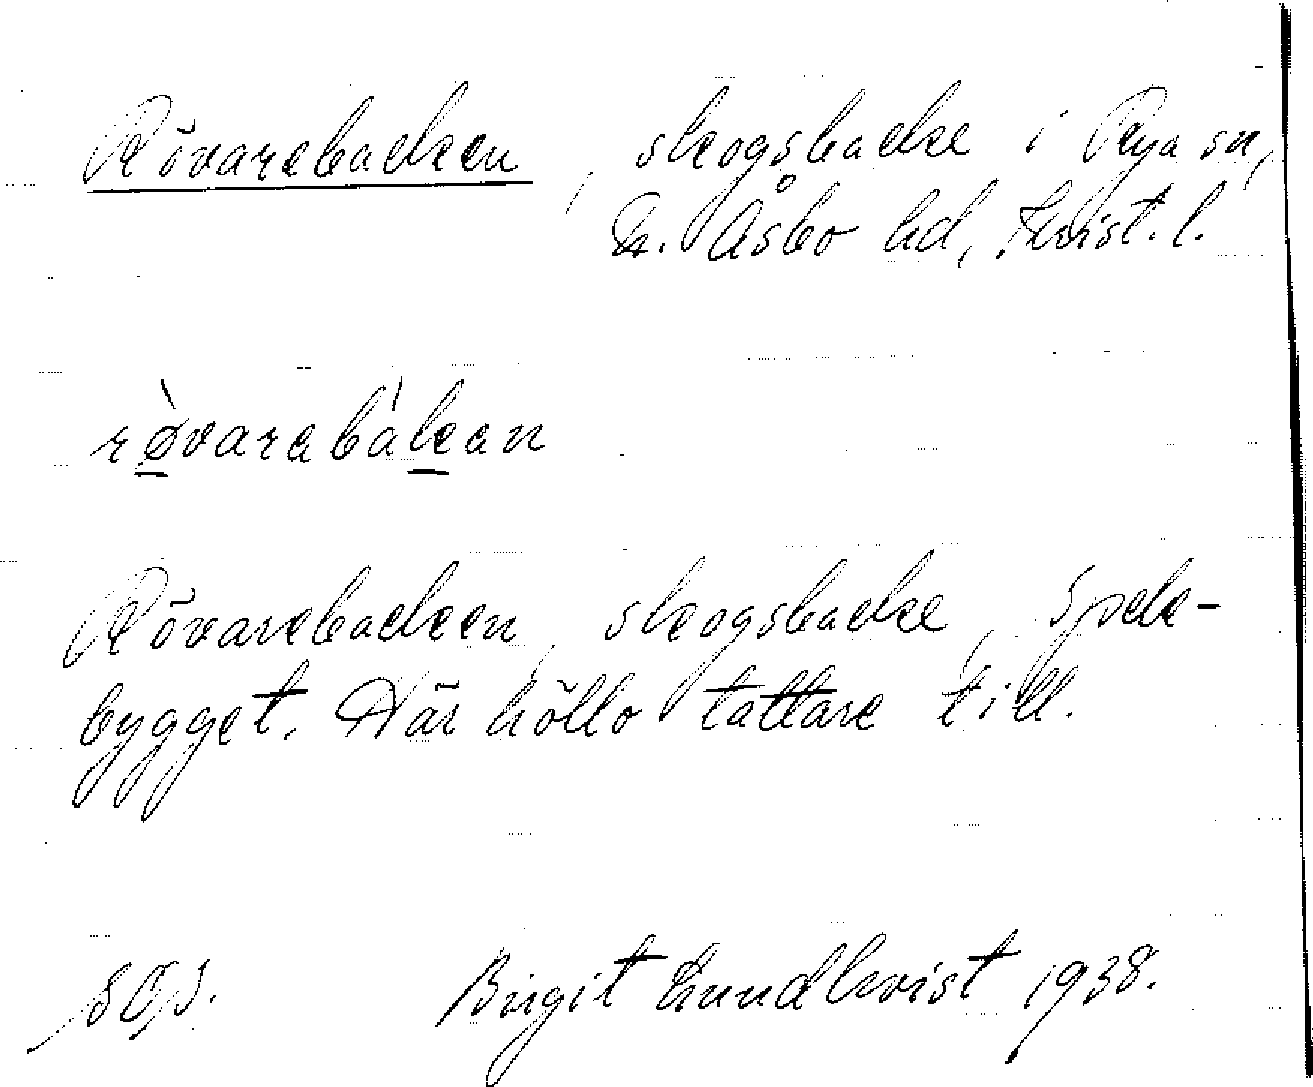 Rövarebacken, skogsbacke i Rya sn,
N. Åsbo hd, Krist. l.
rø̀varabàkan
Rövarebacken, skogsbacke, Spele-
bygget. Här höllo tattare till.
Birgit Lundkvist 1938.